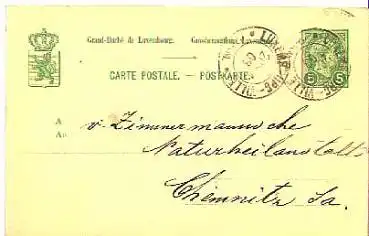 Grand-Duché de Luxembourg. Grossherzogtum Luxemburg.
CARTE POSTALE. — POSTKARTE.
5 5
LUXEMBOURG-VILLE
A
An
v. Zimmermannsche
Naturheilanstalt
Chemnitz Sa.